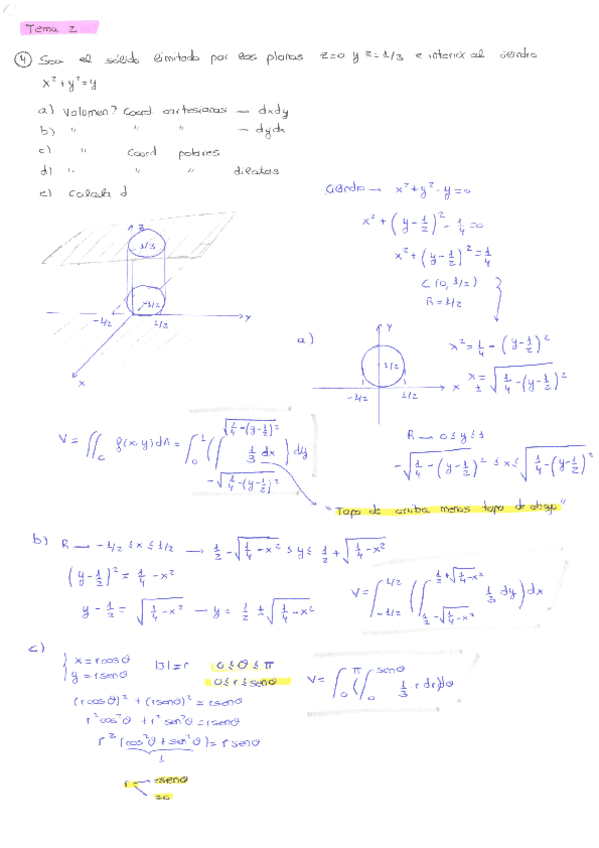 Tema 2
④ Sea el sólido limitado por los planos z=0 y z=1/3 e interior al cilindro
x²+y²=y
a) Volumen? Coord. cartesianas — dxdy
b) " " " — dydx
c) " Coord polares
d) " " "
e) Calcula d
Cilindro → x²+y²-y=0
x²+(y-1/2)²-1/4=0
x²+(y-1/2)²=1/4
C(0,1/2)
R=1/2
z
1/3
1/2
-1/2 1/2 y
x
a)
y
1/2
-1/2 1/2 x
x²=1/4-(y-1/2)²
x=±√(1/4-(y-1/2)²)
V=∬_C f(x,y)dA=∫_0^1(∫_{-√(1/4-(y-1/2)²)}^{√(1/4-(y-1/2)²)} 1/3 dx)dy
R → 0≤y≤1
-√(1/4-(y-1/2)²)≤x≤√(1/4-(y-1/2)²)
"Tapa de arriba menos tapa de abajo"
b) R → -1/2≤x≤1/2 → 1/2-√(1/4-x²)≤y≤1/2+√(1/4-x²)
(y-1/2)²=1/4-x²
y-1/2=√(1/4-x²) → y=1/2±√(1/4-x²)
V=∫_{-1/2}^{1/2}(∫_{1/2-√(1/4-x²)}^{1/2+√(1/4-x²)} 1/3 dy)dx
c)
{ x=rcosθ |J|=r 0≤θ≤π
y=rsenθ 0≤r≤senθ
V=∫_0^π(∫_0^{senθ} 1/3 r dr)dθ
(rcosθ)²+(rsenθ)²=rsenθ
r²cos²θ+r²sen²θ=rsenθ
r²(cos²θ+sen²θ)=rsenθ
1
r =senθ
=0